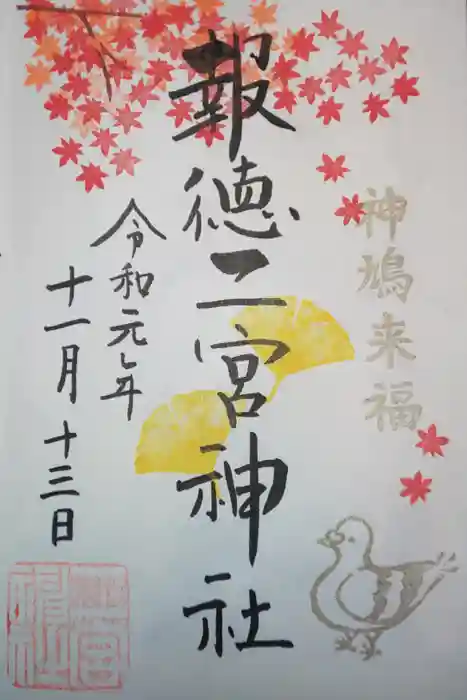 神鳩来福
報徳二宮神社
令和元年
十一月十三日